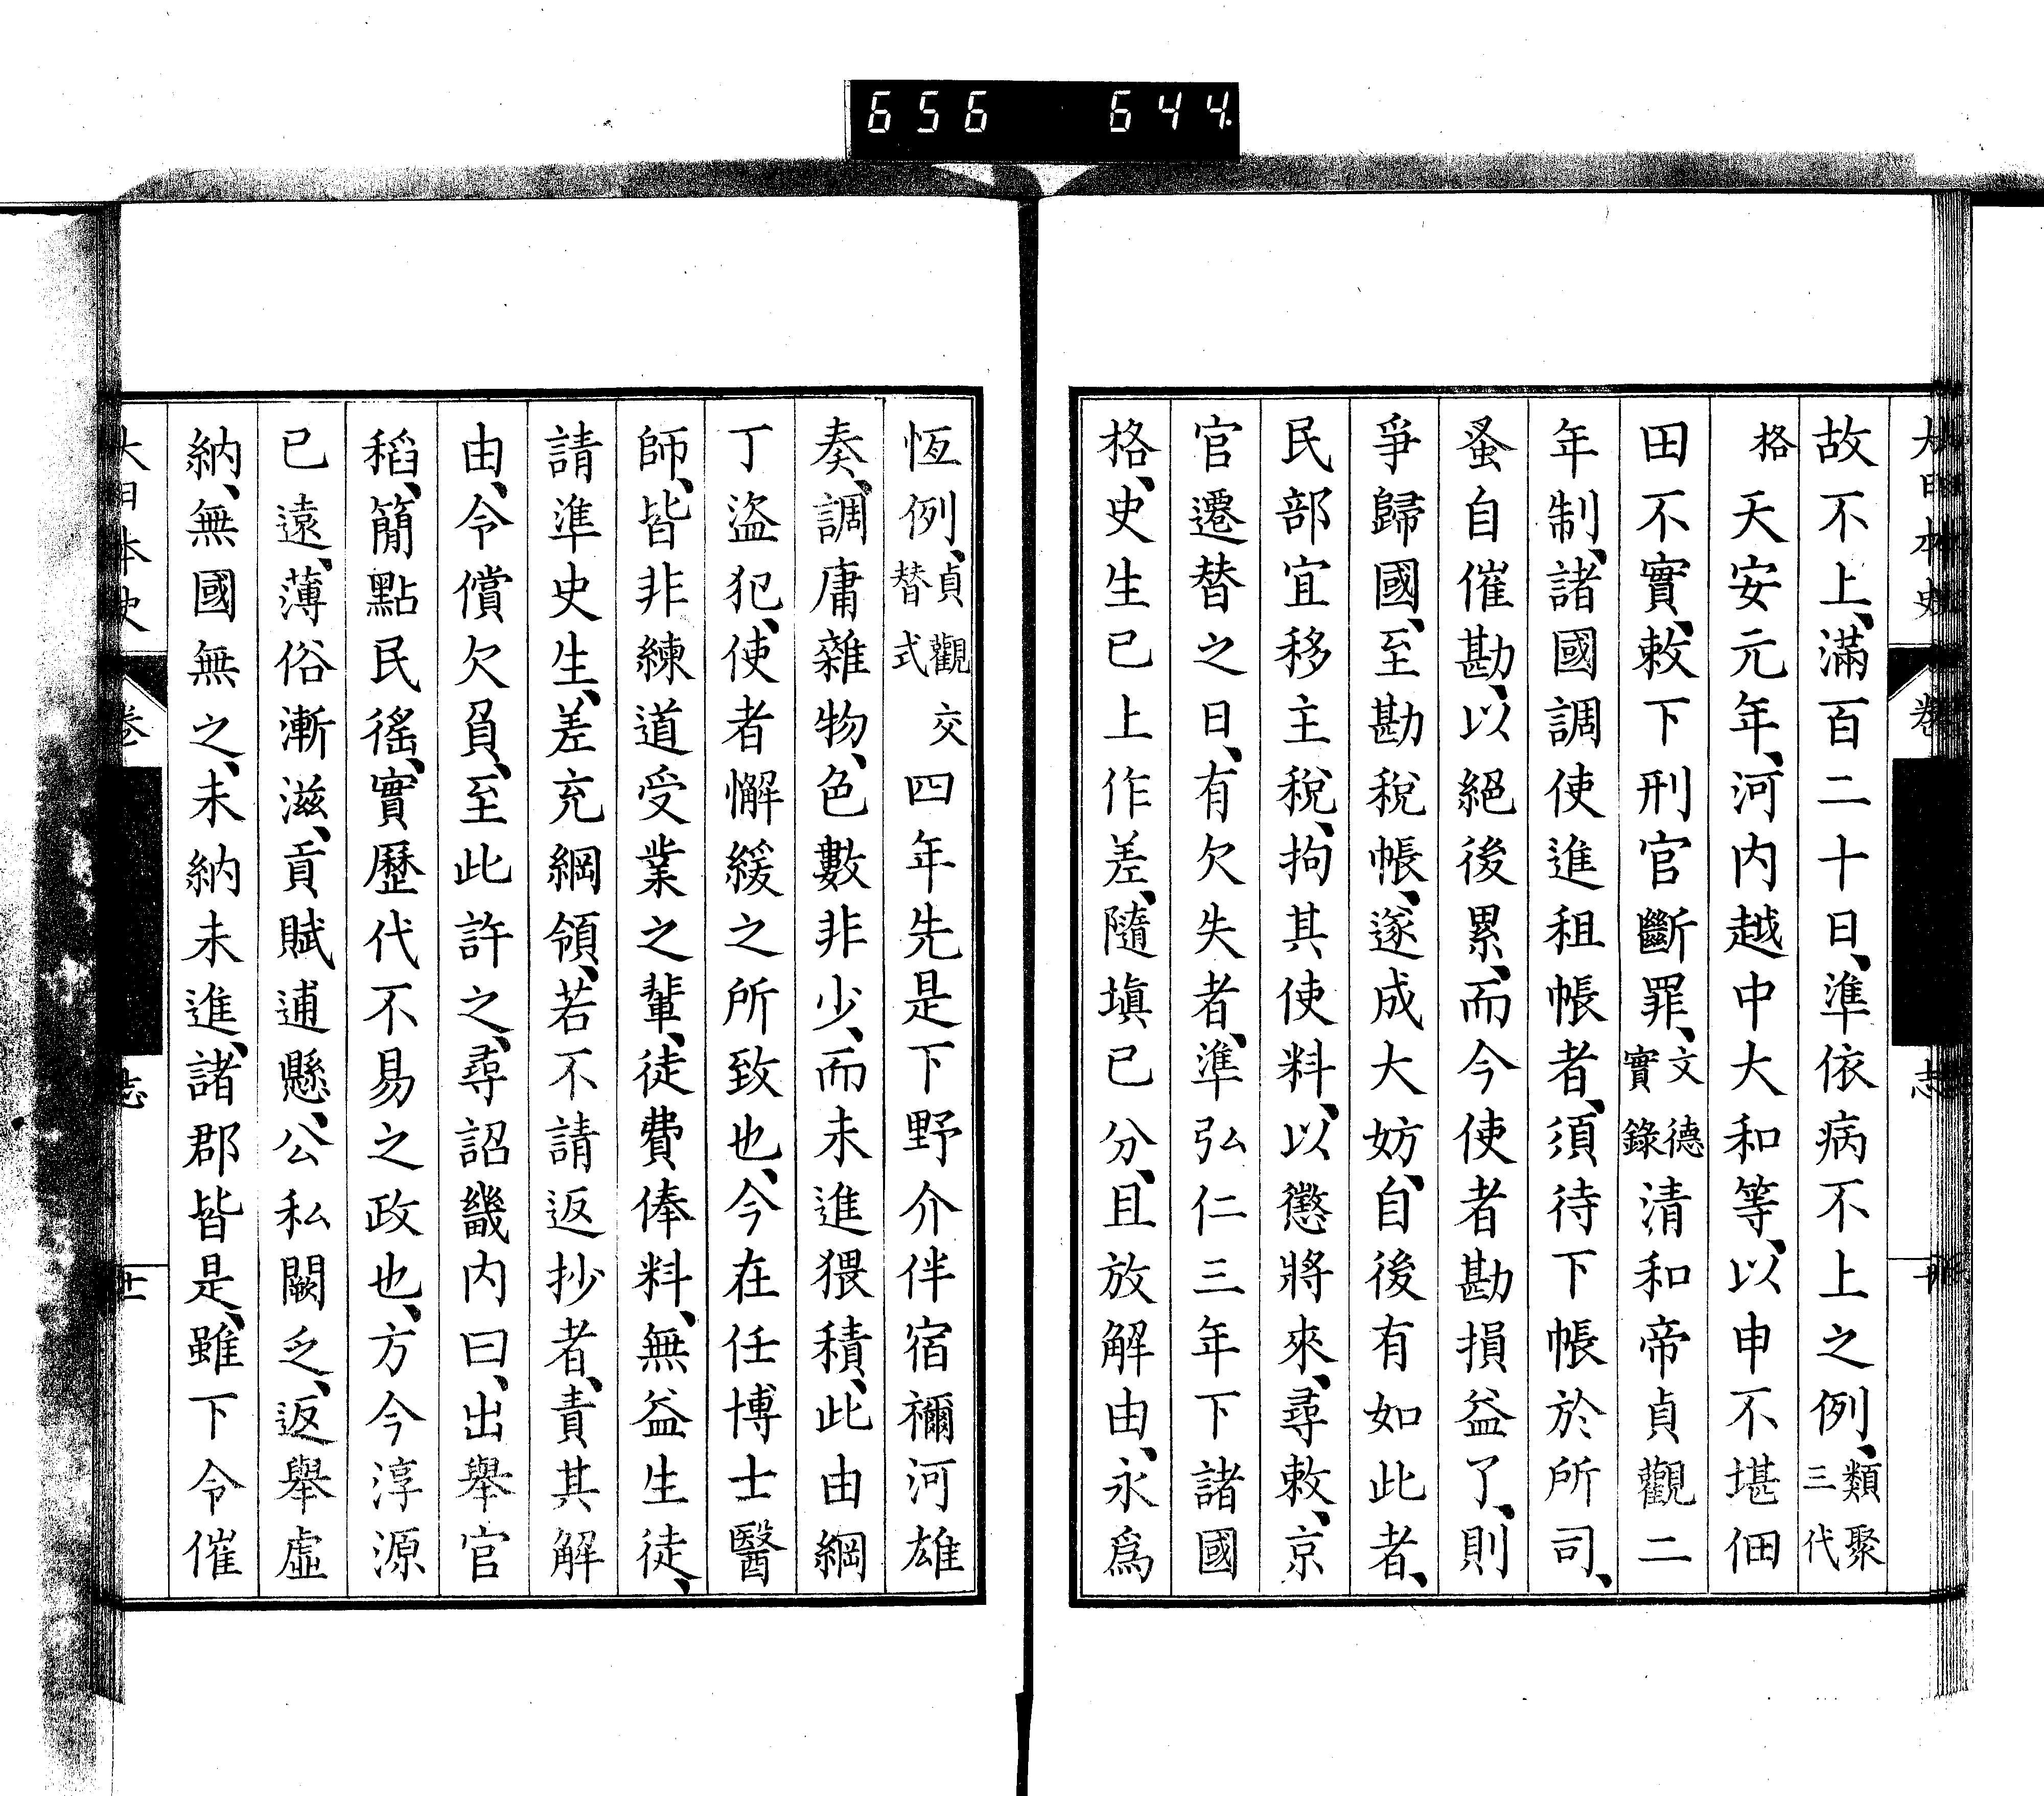 656 644
大日本史 卷 志
故不上、滿百二十日、準依病不上之例、類聚三代
格 天安元年、河内越中大和等、以申不堪佃
田不實、敕下刑官斷罪、文德實錄 清和帝貞觀二
年制、諸國調使進租帳者、須待下帳於所司、
蚤自催勘、以絕後累、而今使者勘損益了、則
爭歸國、至勘稅帳、遂成大妨、自後有如此者、
民部宜移主稅、拘其使料、以懲將來、尋敕、京
官遷替之日、有欠失者、準弘仁三年下諸國
格、史生已上作差、隨塡已分、且放解由、永爲
恆例、貞觀交替式 四年先是下野介伴宿禰河雄
奏、調庸雜物、色數非少、而未進猥積、此由綱
丁盜犯、使者懈緩之所致也、今在任博士醫
師、皆非練道受業之輩、徒費俸料、無益生徒、
請準史生、差充綱領、若不請返抄者、責其解
由、令償欠負、至此許之、尋詔畿内曰、出舉官
稻、簡點民徭、實歷代不易之政也、方今淳源
已遠、薄俗漸滋、貢賦逋懸、公私闕乏、返舉虛
納、無國無之、未納未進、諸郡皆是、雖下令催
大日本史 卷 志